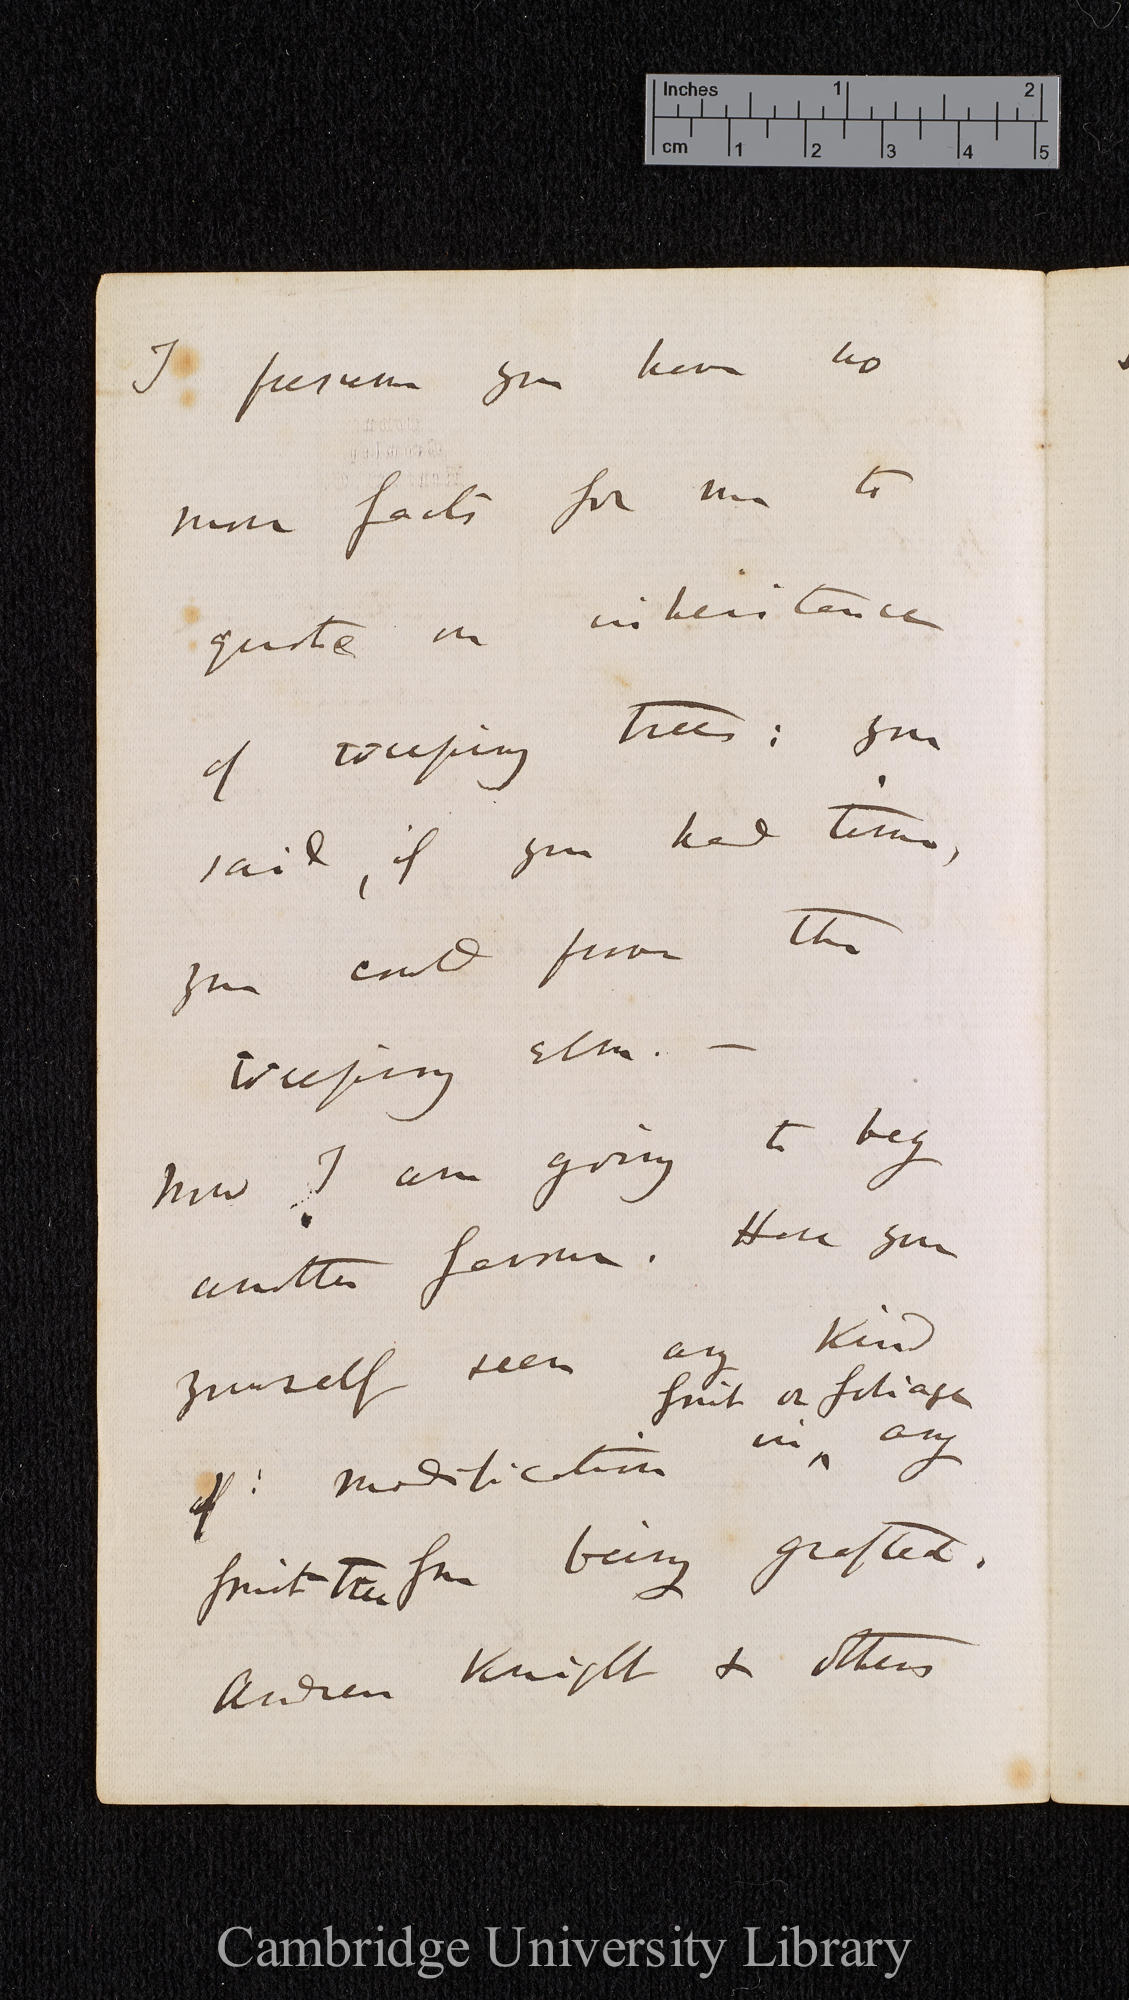 Inches 1 2
cm 1 2 3 4 5
I presume you have no
more facts for me to
quote on inheritance
of weeping trees: you
said, if you had time,
you could from the
weeping elm. —
Now I am going to beg
another favour. Have you
yourself seen any kind
fruit or foliage
of modification in ^ any
fruit-tree from being grafted.
Andrew Knight & others
Cambridge University Library